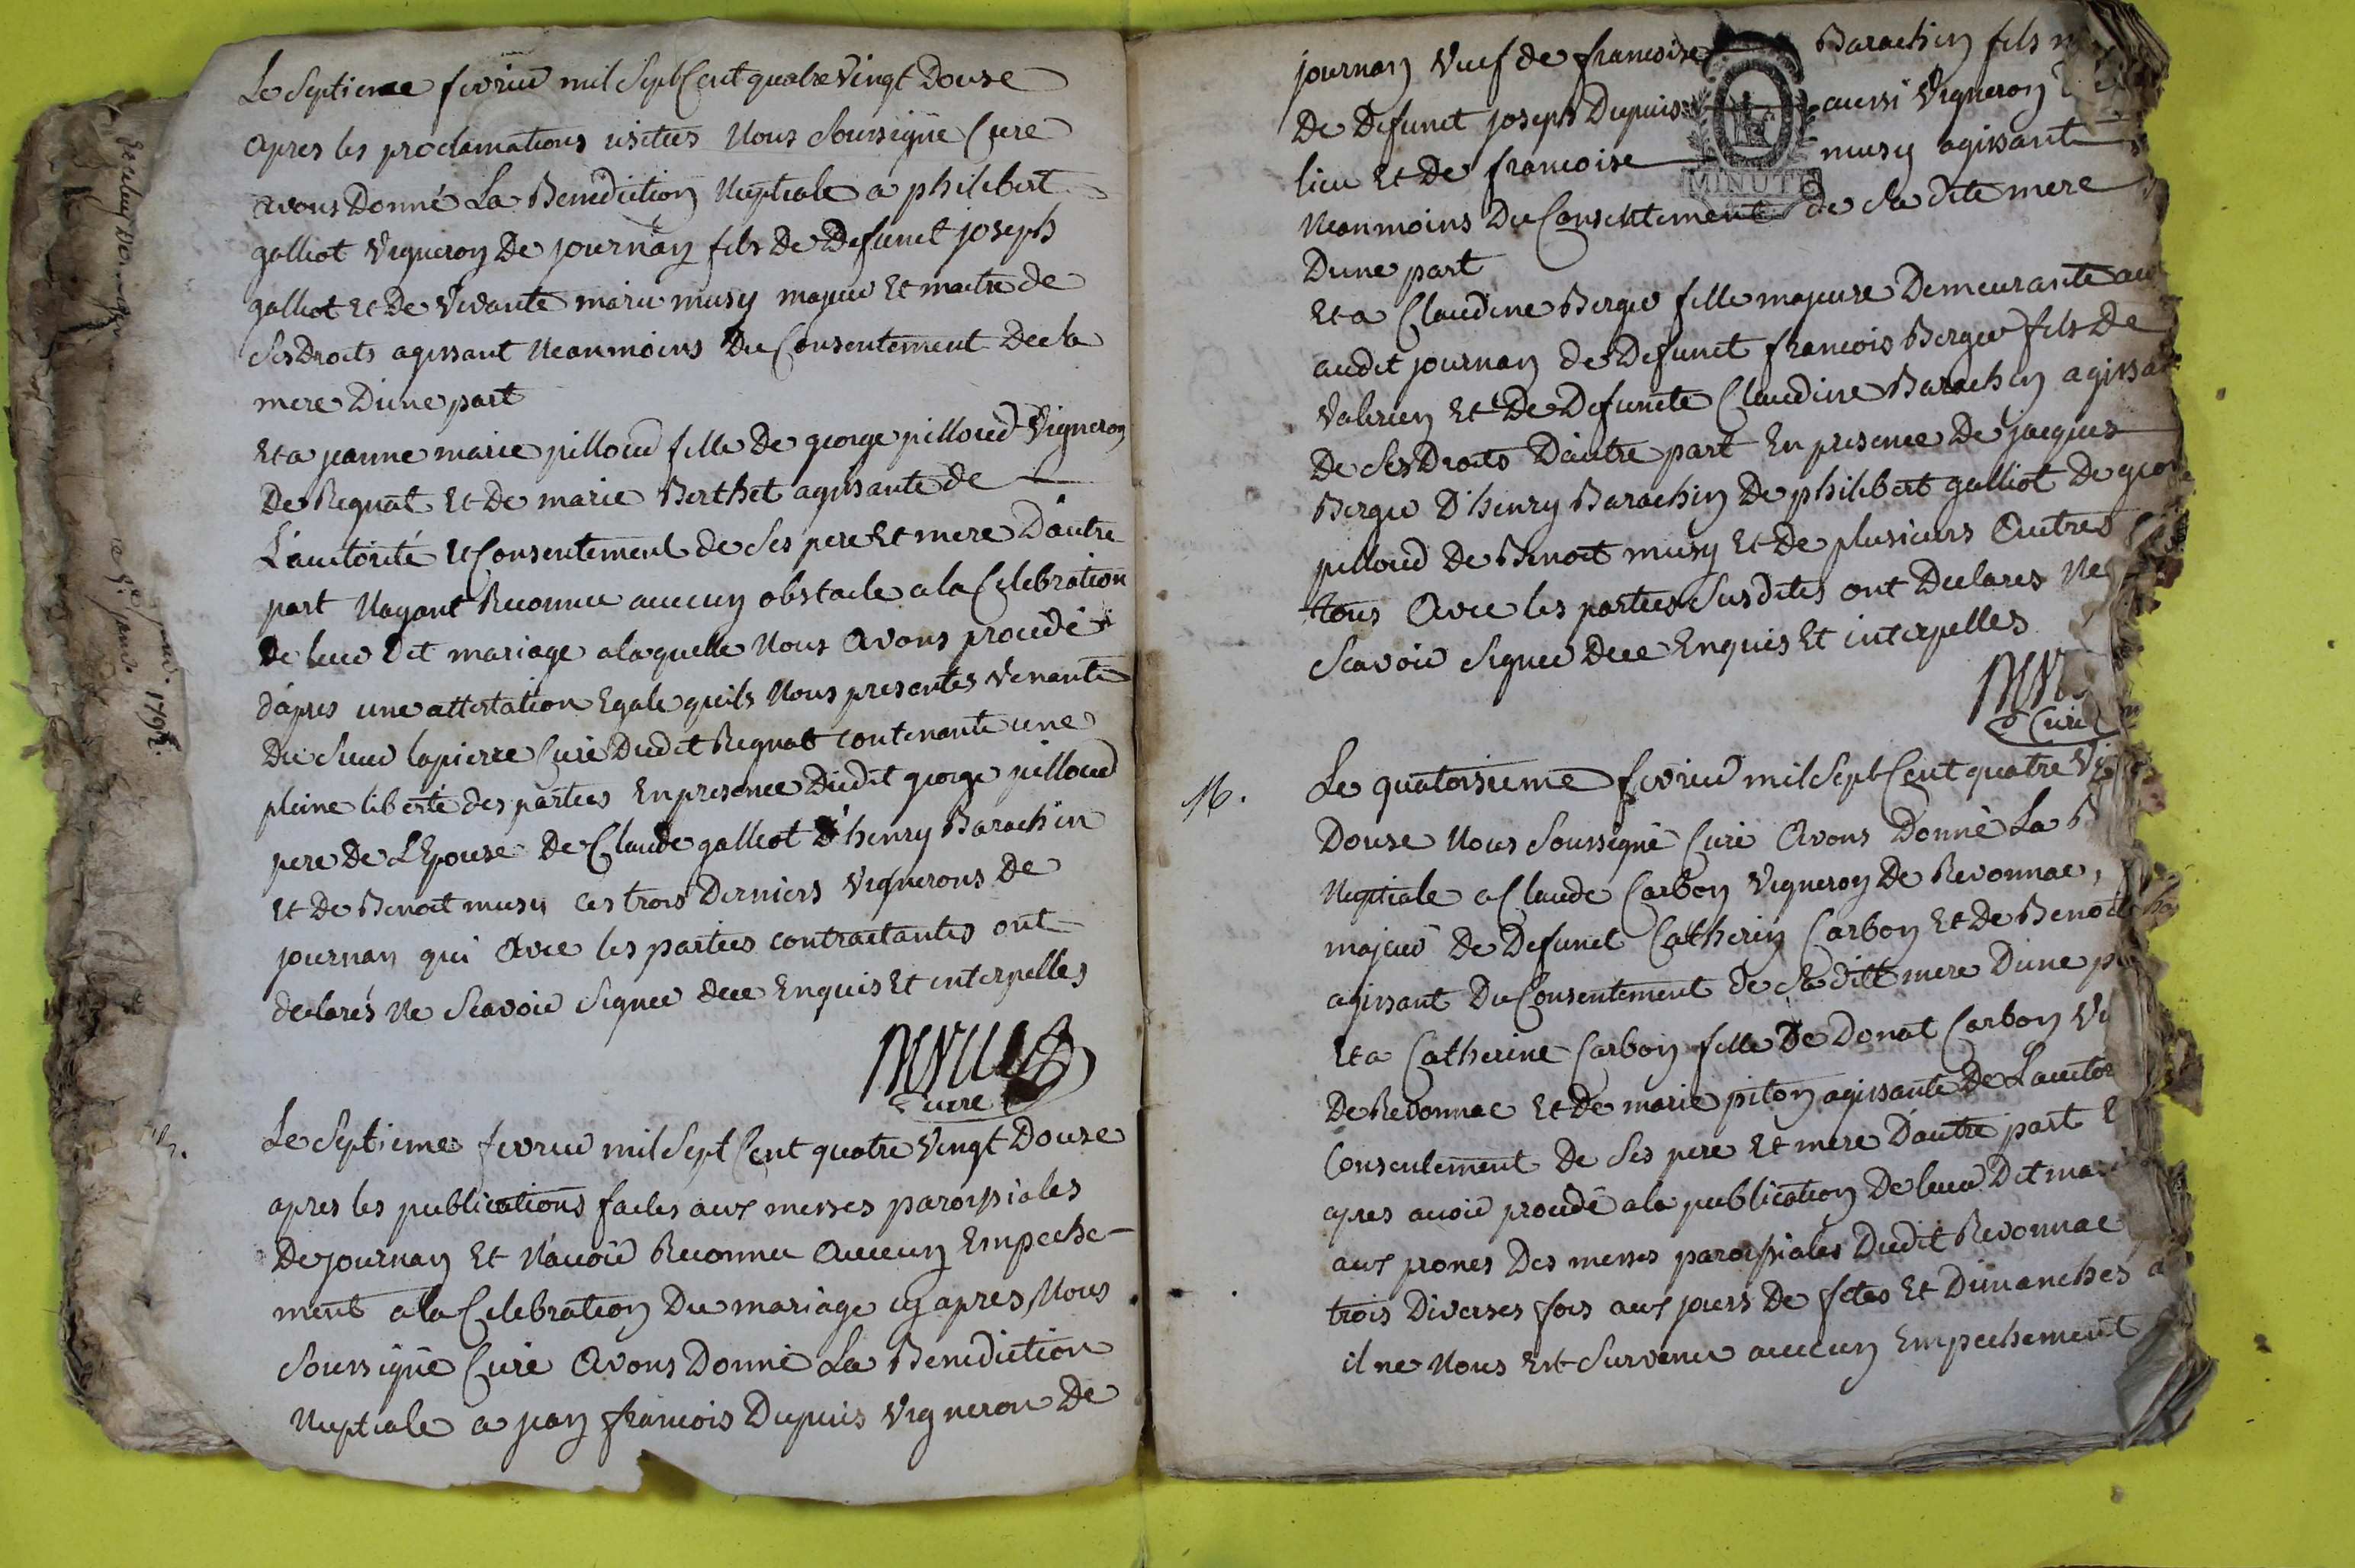 Le Septieme fevrier mil Sept Cent quatre Vingt Douse
apres les proclamations usitées Nous Soussigné Curé
avons Donné La Benediction Nuptiale a philibert
galliot Vigneron De journan fils De Defunct joseph
galliot et De Vivante marie musy majeur Et maitre de
Ses Droits agissant Neanmoins Du Consentement De sa
mere D'une part
Et a jeanne marie pilloud fille De george pilloud Vigneron
De Regnat Et De marie Berthet agissante de
L'autorité Et Consentement de Ses pere Et mere D'autre
part Nayant Reconnu aucun obstacle a la Celebration
De leur Dit mariage a laquelle Nous Avons procedé
d'apres une attestation Egale quils Nous presentes venante
Du Sieur lapierre Curé Dudit Regnat contenante une
pleine liberté des parties En presence Dudit george pilloud
pere De L'Epouse De Claude galliot D'henry Barachin
Et De Benoit musy ces trois Derniers Vignerons De
journan qui Avec les parties contractantes ont
declarés Ne Scavoir Signer dece Enquis Et interpellés
Curé
Le Septieme fevrier mil Sept Cent quatre Vingt Douse
apres les publications faites aux messes paroissiales
De journan Et N'avoir Reconnu Aucun Empeche-
ment a la Celebration Du mariage cy apres, Nous
Soussigné Curé Avons Donné La Benediction
Nuptiale a jean francois Dupuis Vigneron De
journan Veuf de francoise Barachin fils
De Defunct joseph Dupuis aussi Vigneron
lieu Et De francoise musy agissant
MINUTE
Neanmoins Du Consentement de Sa dite mere
Dune part
Et a Claudine Berger fille majeure Demeurante au
audit journan de Defunct francois Berger fils De
Valerien Et De Defuncte Claudine Barachin agissante
De Ses Droits D'autre part En presence De jacques
Berger D'henry Barachin De philibert galliot De george
pilloud De Benoit musy Et De plusieurs Autres
tous Avec les parties Susdites ont Declarés Ne
Scavoir Signer dece Enquis Et interpellés
Curé
16.
Le quatorsieme fevrier mil Sept Cent quatre
Douse Nous Soussigné Curé Avons Donné La
Nuptiale a Claude Carbon Vigneron De Revonnac,
majeur De Defunct Catherin Carbon Et De Benoite
agissant Du Consentement de Sa ditte mere Dune
Et a Catherine Carbon fille De Donat Carbon
De Revonnac Et De marie piton agissante De L'autor
Consentement De Ses pere Et mere D'autre part
apres avoir procedé a la publication De leur Dit
aux prones Des messes paroissiales Dudit Revonnac
trois Diverses fois aux jours De fetes Et Dimanches
il ne Nous Est Survenu aucun Empechement